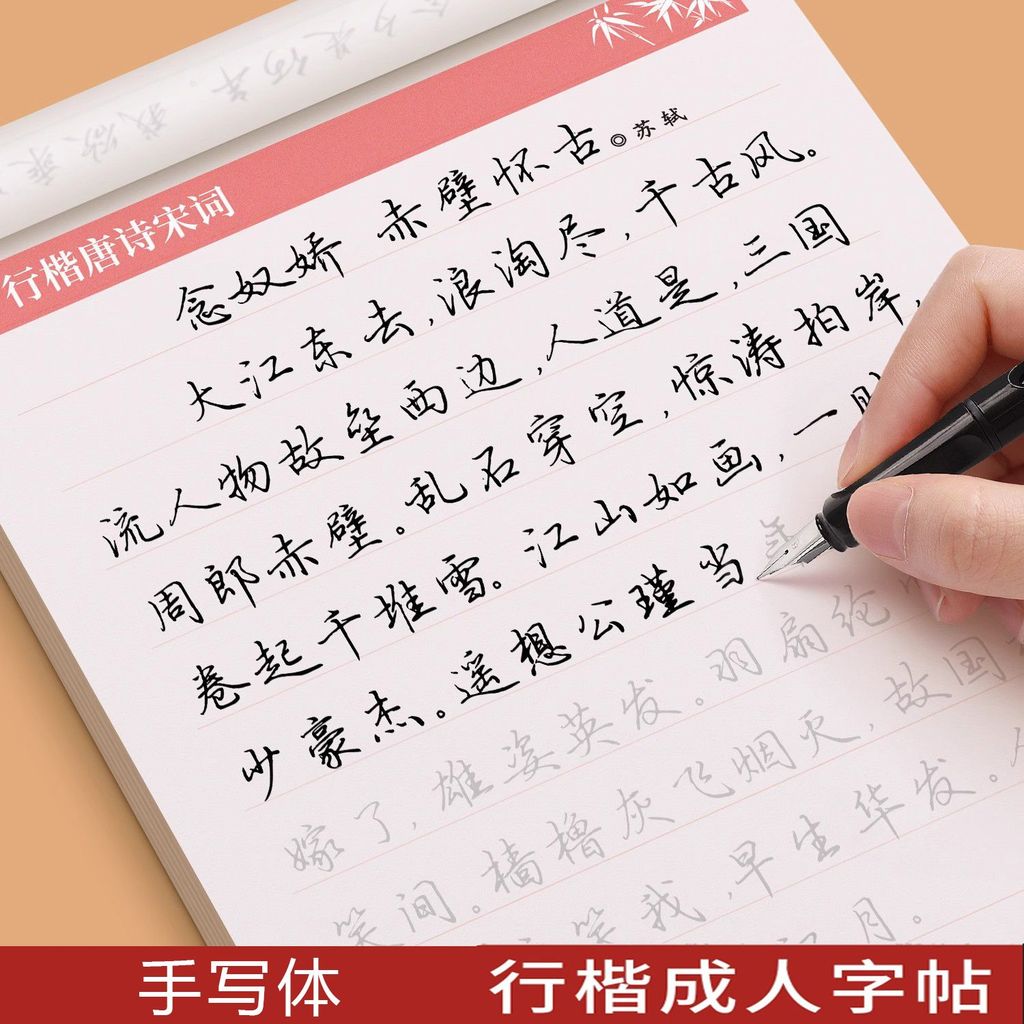 行楷唐诗宋词
念奴娇 赤壁怀古◎苏轼
大江东去,浪淘尽,千古风。
流人物故垒西边,人道是,三国
周郎赤壁。乱石穿空,惊涛拍岸,
卷起千堆雪。江山如画,一
少豪杰。遥想公瑾当年
嫁了,雄姿英发。羽扇纶
笑间。樯橹灰飞烟灭,故国
笑我,早生华发。
月。
手写体
行楷成人字帖